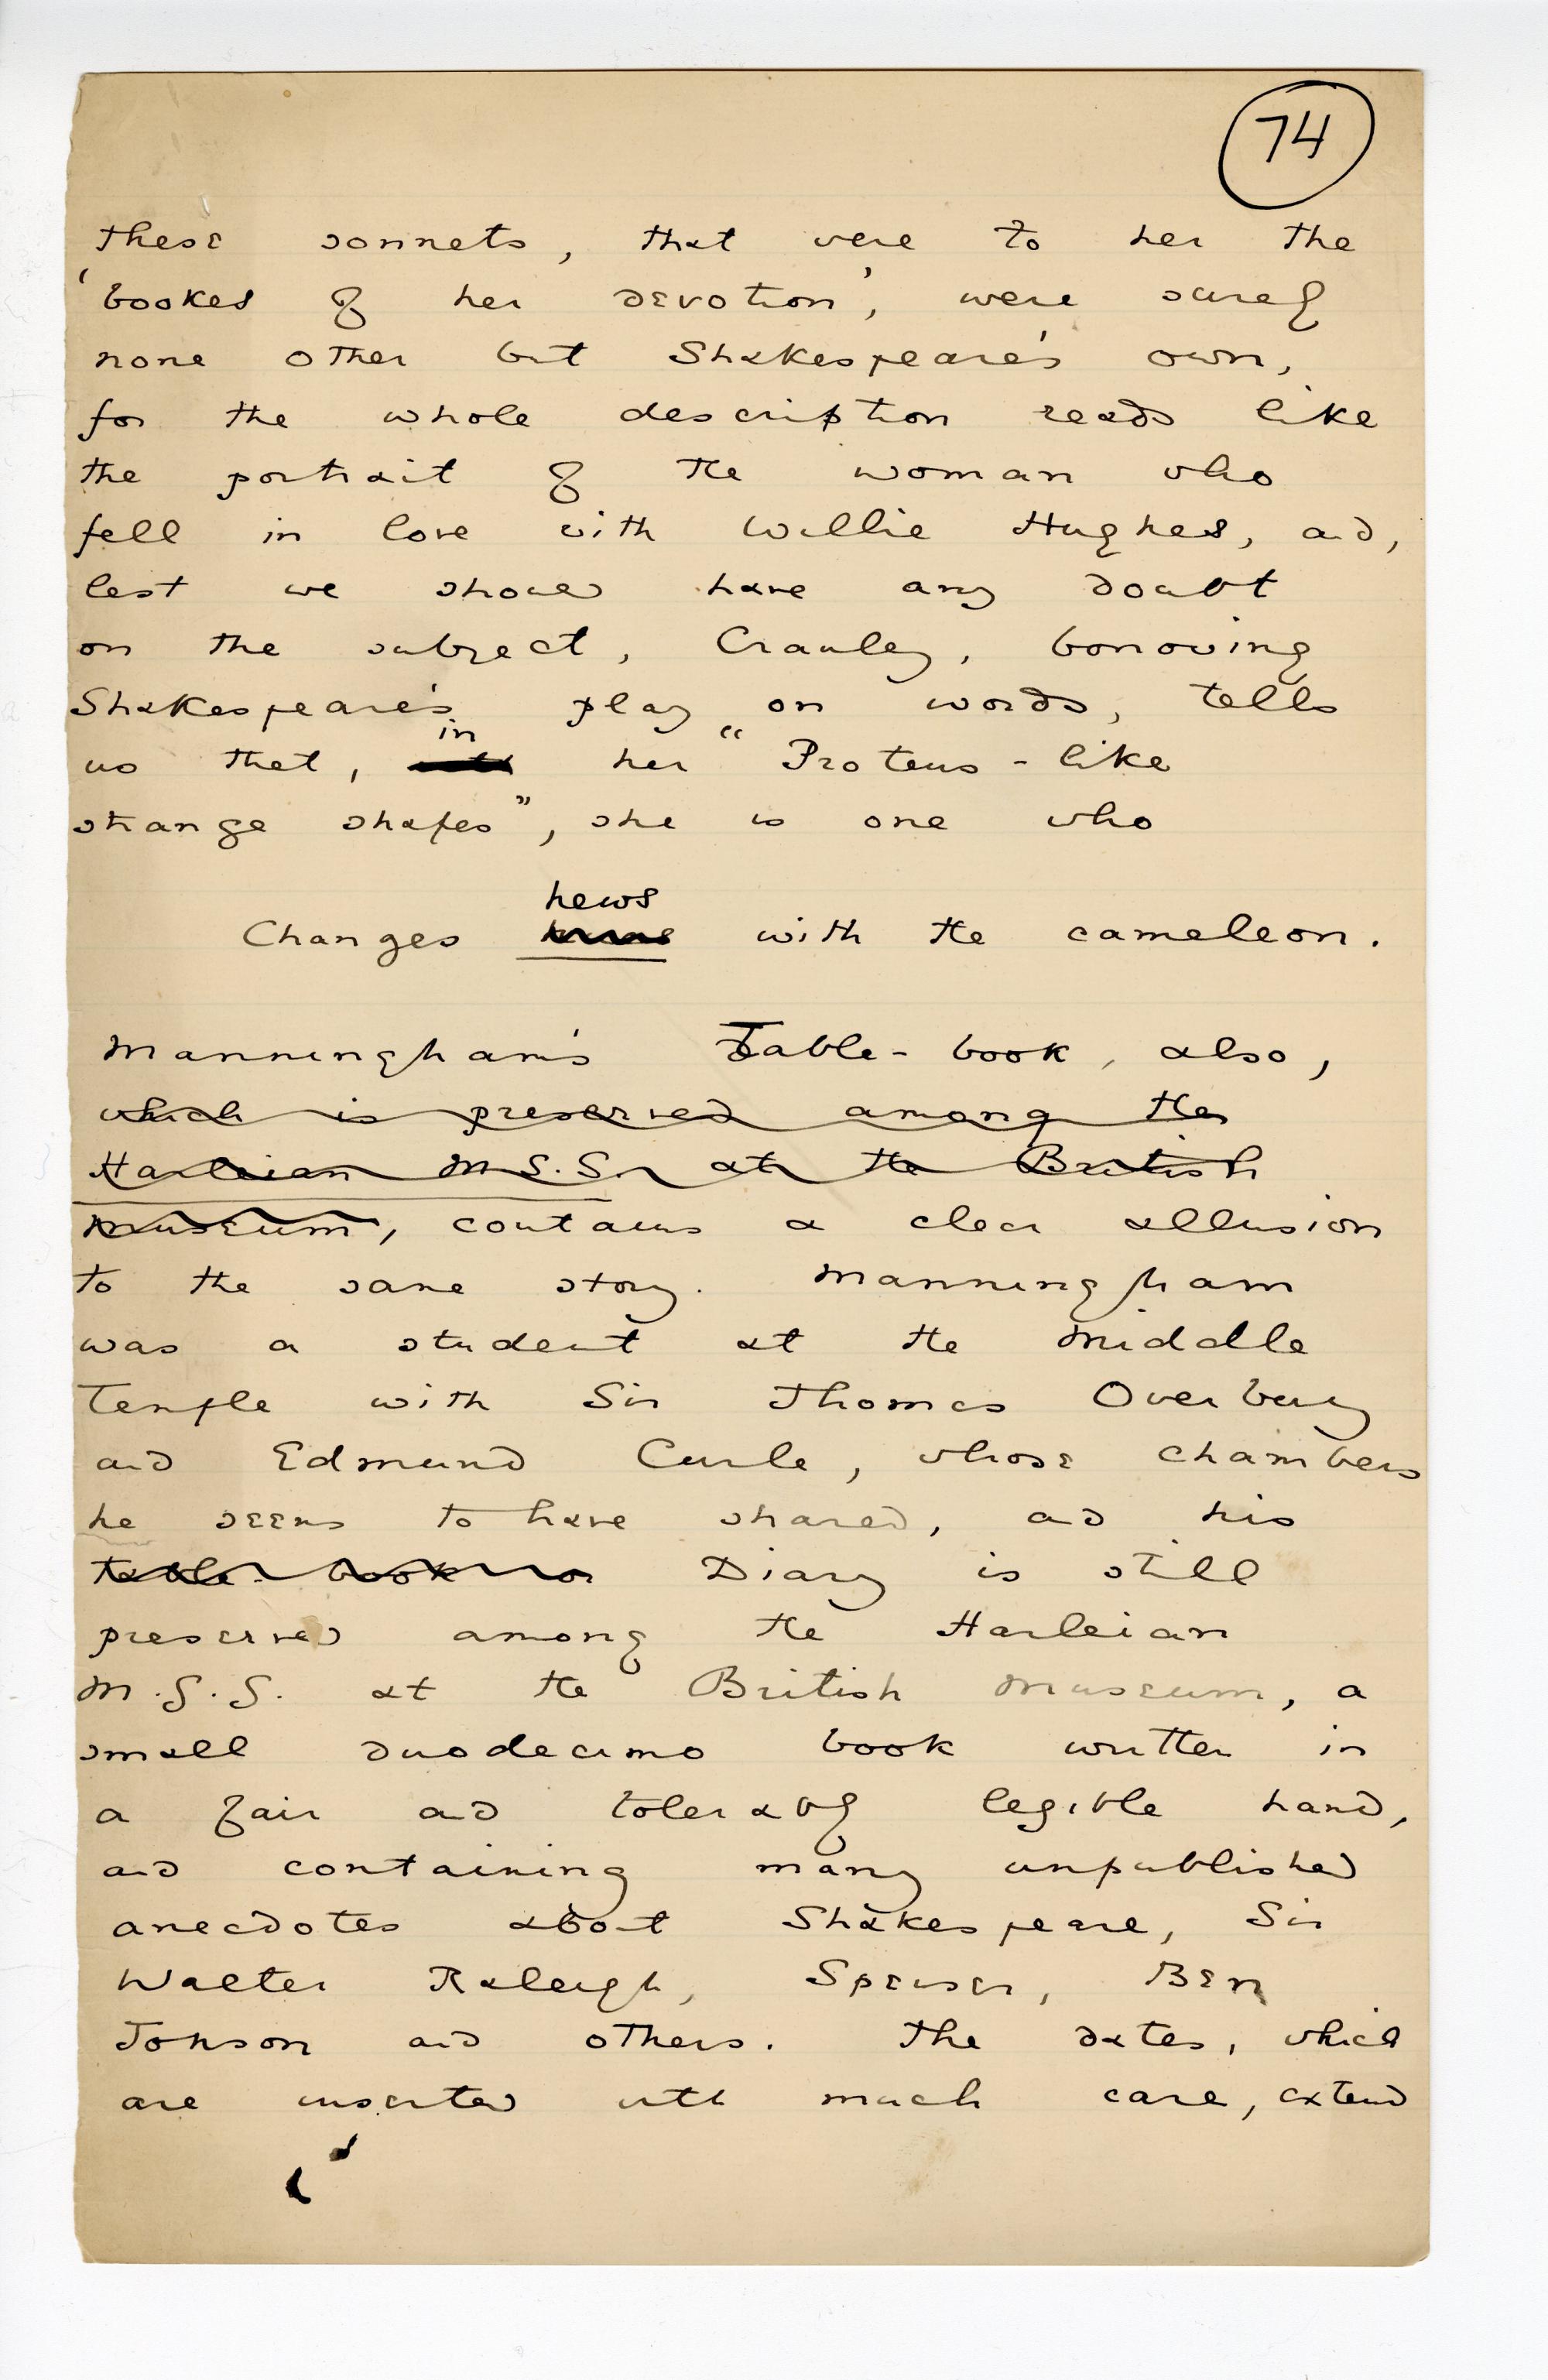 74
these sonnets, that were to her the
'bookes of her devotion', were surely
none other but Shakespeare's own,
for the whole description reads like
the portrait of the woman who
fell in love with Willie Hughes, and,
lest we should have any doubt
on the subject, Crauley, borrowing
Shakespeare's play on words, tells
in
us that, her "Proteus-like
strange shapes", she is one who
hews
Changes with the cameleon.
Manningham's Table-book, also,
which is preserved among the
Harleian M.S.S. at the British
Museum, contains a clear allusion
to the same story. Manningham
was a student at the Middle
Temple with Sir Thomas Overbury
and Edmund Curle, whose chambers
he seems to have shared, and his
table-book or Diary is still
preserved among the Harleian
M.S.S. at the British Museum, a
small duodecimo book written in
a fair and tolerably legible hand,
and containing many unpublished
anecdotes about Shakespeare, Sir
Walter Raleigh, Spenser, Ben
Jonson and others. The dates, which
are inserted with much care, extend